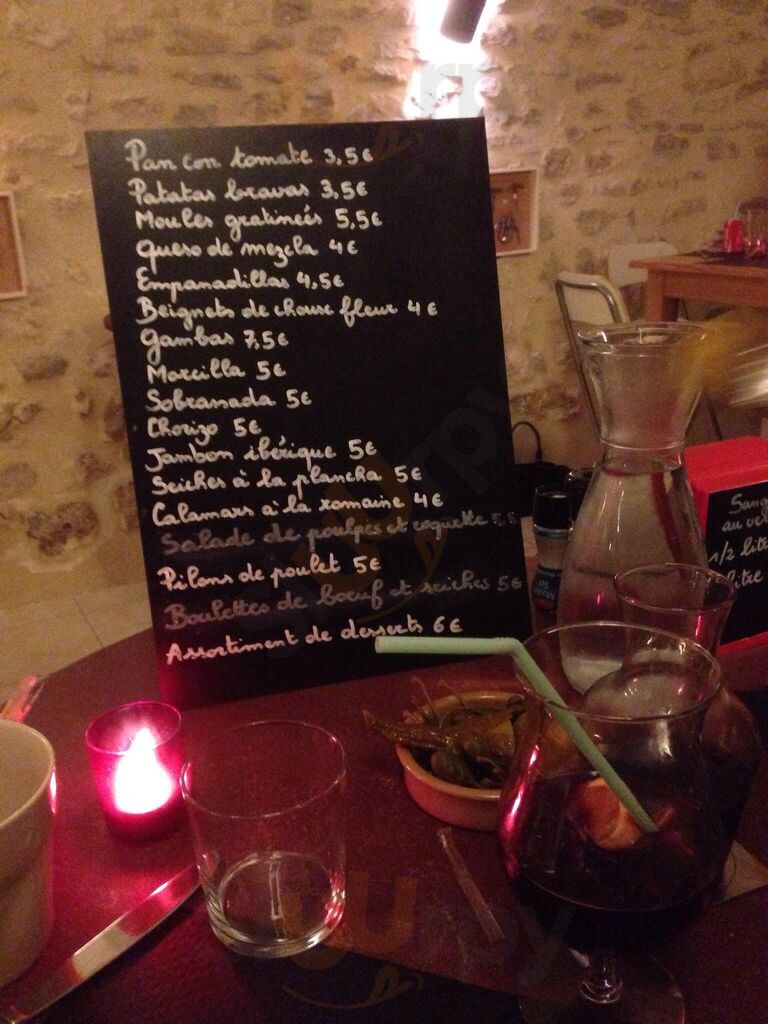 Pan con tomate 3,5€
Patatas bravas 3,5€
Moules gratineés 5,5€
Queso de mezcla 4€
Empanadillas 4,5€
Beignets de choux fleur 4€
Gambas 7,5€
Morcilla 5€
Sobrasada 5€
Chorizo 5€
Jambon ibérique 5€
Seiches à la plancha 5€
Calamars à la romaine 4€
Salade de poulpes et roquette 5€
Pilons de poulet 5€
Boulettes de boeuf et seiches 5€
Assortiment de desserts 6€
Sang
au ve
1/2 lit
litre